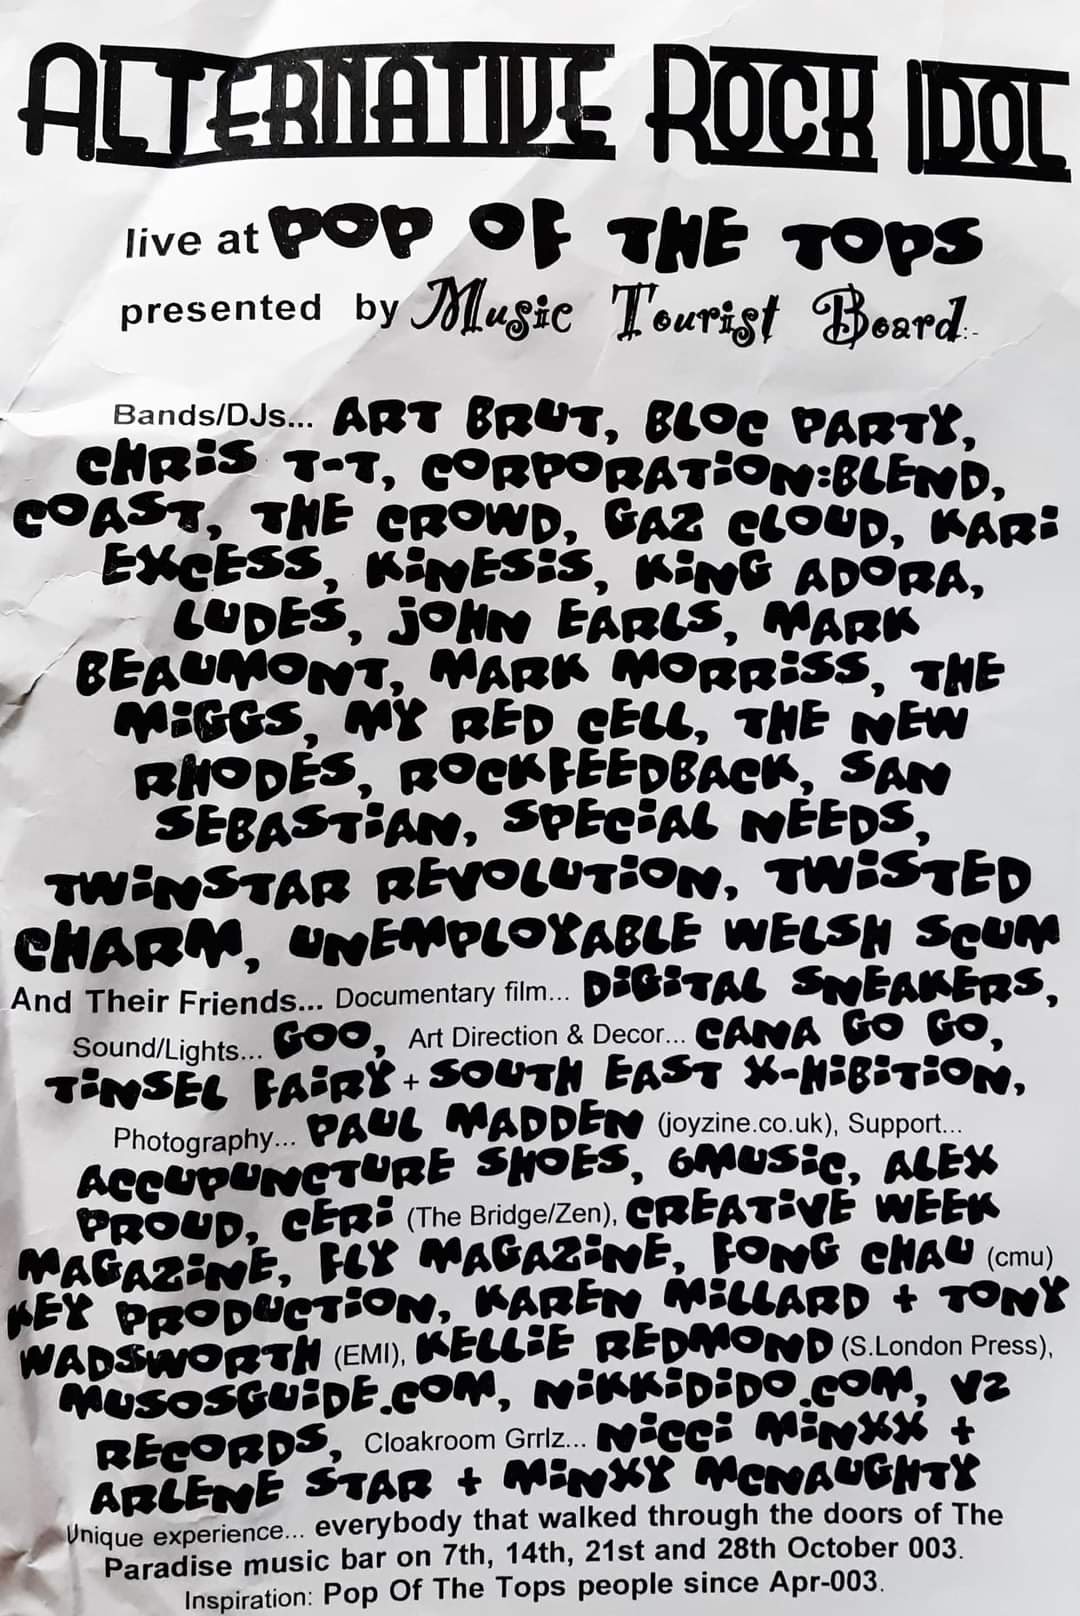 ALTERNATIVE ROCK IDOL
live at POP OF THE TOPS
presented by Music Tourist Board:-
Bands/DJs... ART BRUT, BLOC PARTY,
CHRIS T-T, CORPORATION:BLEND,
COAST, THE CROWD, GAZ CLOUD, KARI
EXCESS, KINESIS, KING ADORA,
LUDES, JOHN EARLS, MARK
BEAUMONT, MARK MORRISS, THE
MIGGS, MY RED CELL, THE NEW
RHODES, ROCKFEEDBACK, SAN
SEBASTIAN, SPECIAL NEEDS,
TWINSTAR REVOLUTION, TWISTED
CHARM, UNEMPLOYABLE WELSH SCUM
And Their Friends... Documentary film... DIGITAL SNEAKERS,
Sound/Lights... GOO, Art Direction & Decor... CANA GO GO,
TINSEL FAIRY + SOUTH EAST X-HIBITION,
Photography... PAUL MADDEN (joyzine.co.uk), Support...
ACCUPUNCTURE SHOES, 6MUSIC, ALEX
PROUD, CERI (The Bridge/Zen), CREATIVE WEEK
MAGAZINE, FLY MAGAZINE, FONG CHAU (cmu)
KEY PRODUCTION, KAREN MILLARD + TONY
WADSWORTH (EMI), KELLIE REDMOND (S.London Press),
MUSOSGUIDE.COM, NIKKIDIDO.COM, V2
RECORDS, Cloakroom Grrlz... NICCI MINXX +
ARLENE STAR + MINXY MCNAUGHTY
Unique experience... everybody that walked through the doors of The
Paradise music bar on 7th, 14th, 21st and 28th October 003.
Inspiration: Pop Of The Tops people since Apr-003.